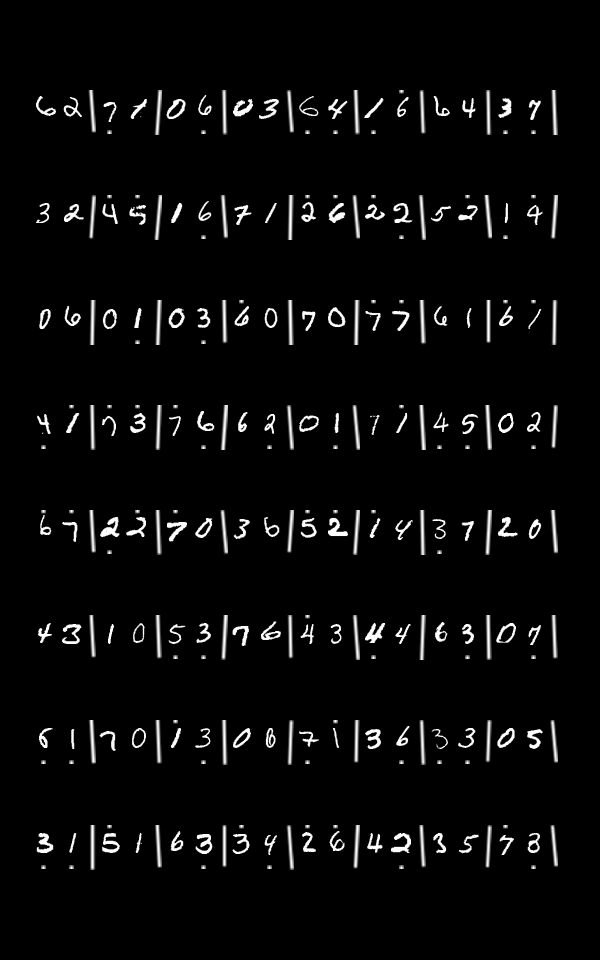 6 2 | 7̣ 1 | 0 6̣ | 0 3 | 6̣ 4̣ | 1̣ 6̇ | 6 4 | 3̣ 7̣ |
3 2 | 4̇ 5̇ | 1 6̣ | 7 1 | 2̇ 6̇ | 2̇ 2̣ | 5 2̇ | 1̣ 4̇ |
0 6 | 0 1̣ | 0 3̣ | 6̇ 0 | 7 0 | 7̇ 7̇ | 6 1 | 6̇ 1̇ |
4̣ 1̇ | 7̇ 3̇ | 7̇ 6̣ | 6 2̣ | 0 1̣ | 7 1̇ | 4̣ 5̣ | 0 2̣ |
6̇ 7̇ | 2̣ 2̇ | 7̇ 0 | 3 6 | 5̇ 2̇ | 1̇ 4 | 3̣ 7 | 2 0 |
4 3 | 1 0 | 5̣ 3̣ | 7 6 | 4̇ 3 | 4̣ 4 | 6 3̣ | 0 7̣ |
6̣ 1̣ | 7 0 | 1̇ 3̣ | 0 6 | 7̣ 1̇ | 3 6̣ | 3̣ 3̣ | 0 5 |
3̣ 1̣ | 5̇ 1 | 6 3̣ | 3̇ 4̣ | 2̇ 6̇ | 4 2̣ | 3 5 | 7̇ 3̣ |